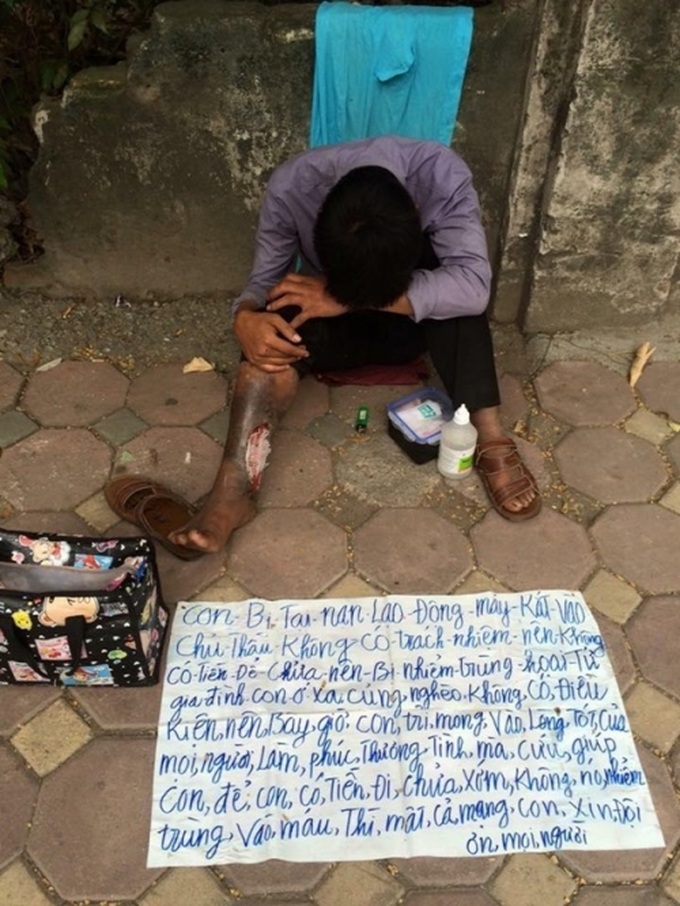 Con-Bị Tai nạn Lao-Động-máy-Kát Vào
Chủ Thầu Không Có trách nhiệm-nên-Không
Có-Tiền-Để Chữa-nên-Bị nhiễm-trùng-hoại-Tử
gia đình-con-ở Xa, cũng nghèo, Không, Có, Điều
Kiện, nên, Bay, giờ, con, trỉ, mong, Vào, Lòng, Tốt, của
mọi, người, Làm, phúc, Thương, Tình, mà, cứu, giúp
Con, để, con, có, Tiền, Đi, chửa, Xớm, Không, nó, nhiễm
trùng, Vào, máu, Thì, mất, cả, mạng, con, Xin, Đội
ơn, mọi, người